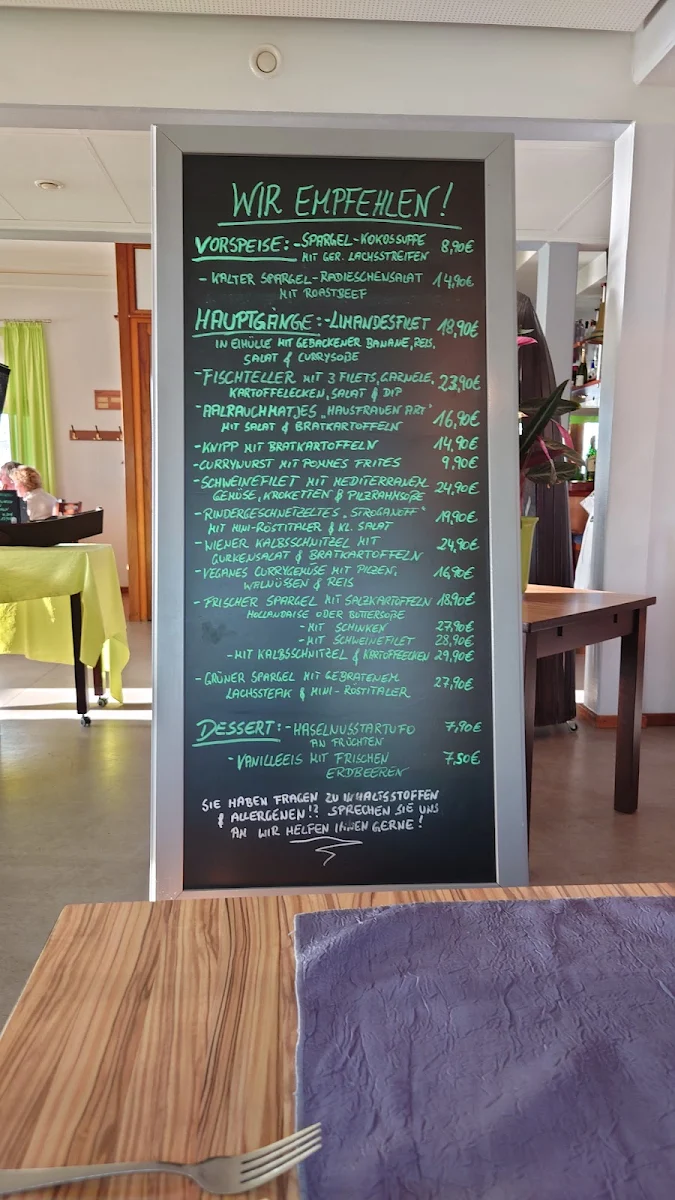 WIR EMPFEHLEN!
VORSPEISE: -SPARGEL-KOKOSSUPPE 8,90€
MIT GER. LACHSSTREIFEN
- KALTER SPARGEL-RADIESCHENSALAT 14,90€
MIT ROASTBEEF
HAUPTGÄNGE: -LIMANDESFILET 18,90€
IN EIHÜLLE MIT GEBACKENER BANANE, REIS,
SALAT & CURRYSOßE
-FISCHTELLER MIT 3 FILETS, GARNELE, 23,90€
KARTOFFELECKEN, SALAT & DIP
-AALRAUCHMATJES „HAUSFRAUEN ART" 16,90€
MIT SALAT & BRATKARTOFFELN
-KNIPP MIT BRATKARTOFFELN 14,90€
-CURRYWURST MIT POMMES FRITES 9,90€
-SCHWEINEFILET MIT MEDITERRANEM 24,90€
GEMÜSE, KROKETTEN & PILZRAHMSOßE
-RINDERGESCHNETZELTES „STROGANOFF" 19,90€
MIT MINI-RÖSTITALER & KL. SALAT
-WIENER KALBSSCHNITZEL MIT 24,90€
GURKENSALAT & BRATKARTOFFELN
-VEGANES CURRYGEMÜSE MIT PILZEN, 16,90€
WALNÜSSEN & REIS
-FRISCHER SPARGEL MIT SALZKARTOFFELN 18,90€
HOLLANDAISE ODER BUTTERSOßE
-MIT SCHINKEN 27,90€
-MIT SCHWEINEFILET 28,90€
-MIT KALBSSCHNITZEL & KARTOFFELECKEN 29,90€
-GRÜNER SPARGEL MIT GEBRATENEM 27,90€
LACHSSTEAK & MINI-RÖSTITALER
DESSERT: -HASELNUSSTARTUFO 7,90€
AN FRÜCHTEN
-VANILLEEIS MIT FRISCHEN 7,50€
ERDBEEREN
SIE HABEN FRAGEN ZU INHALTSSTOFFEN
& ALLERGENEN!? SPRECHEN SIE UNS
AN WIR HELFEN IHNEN GERNE!